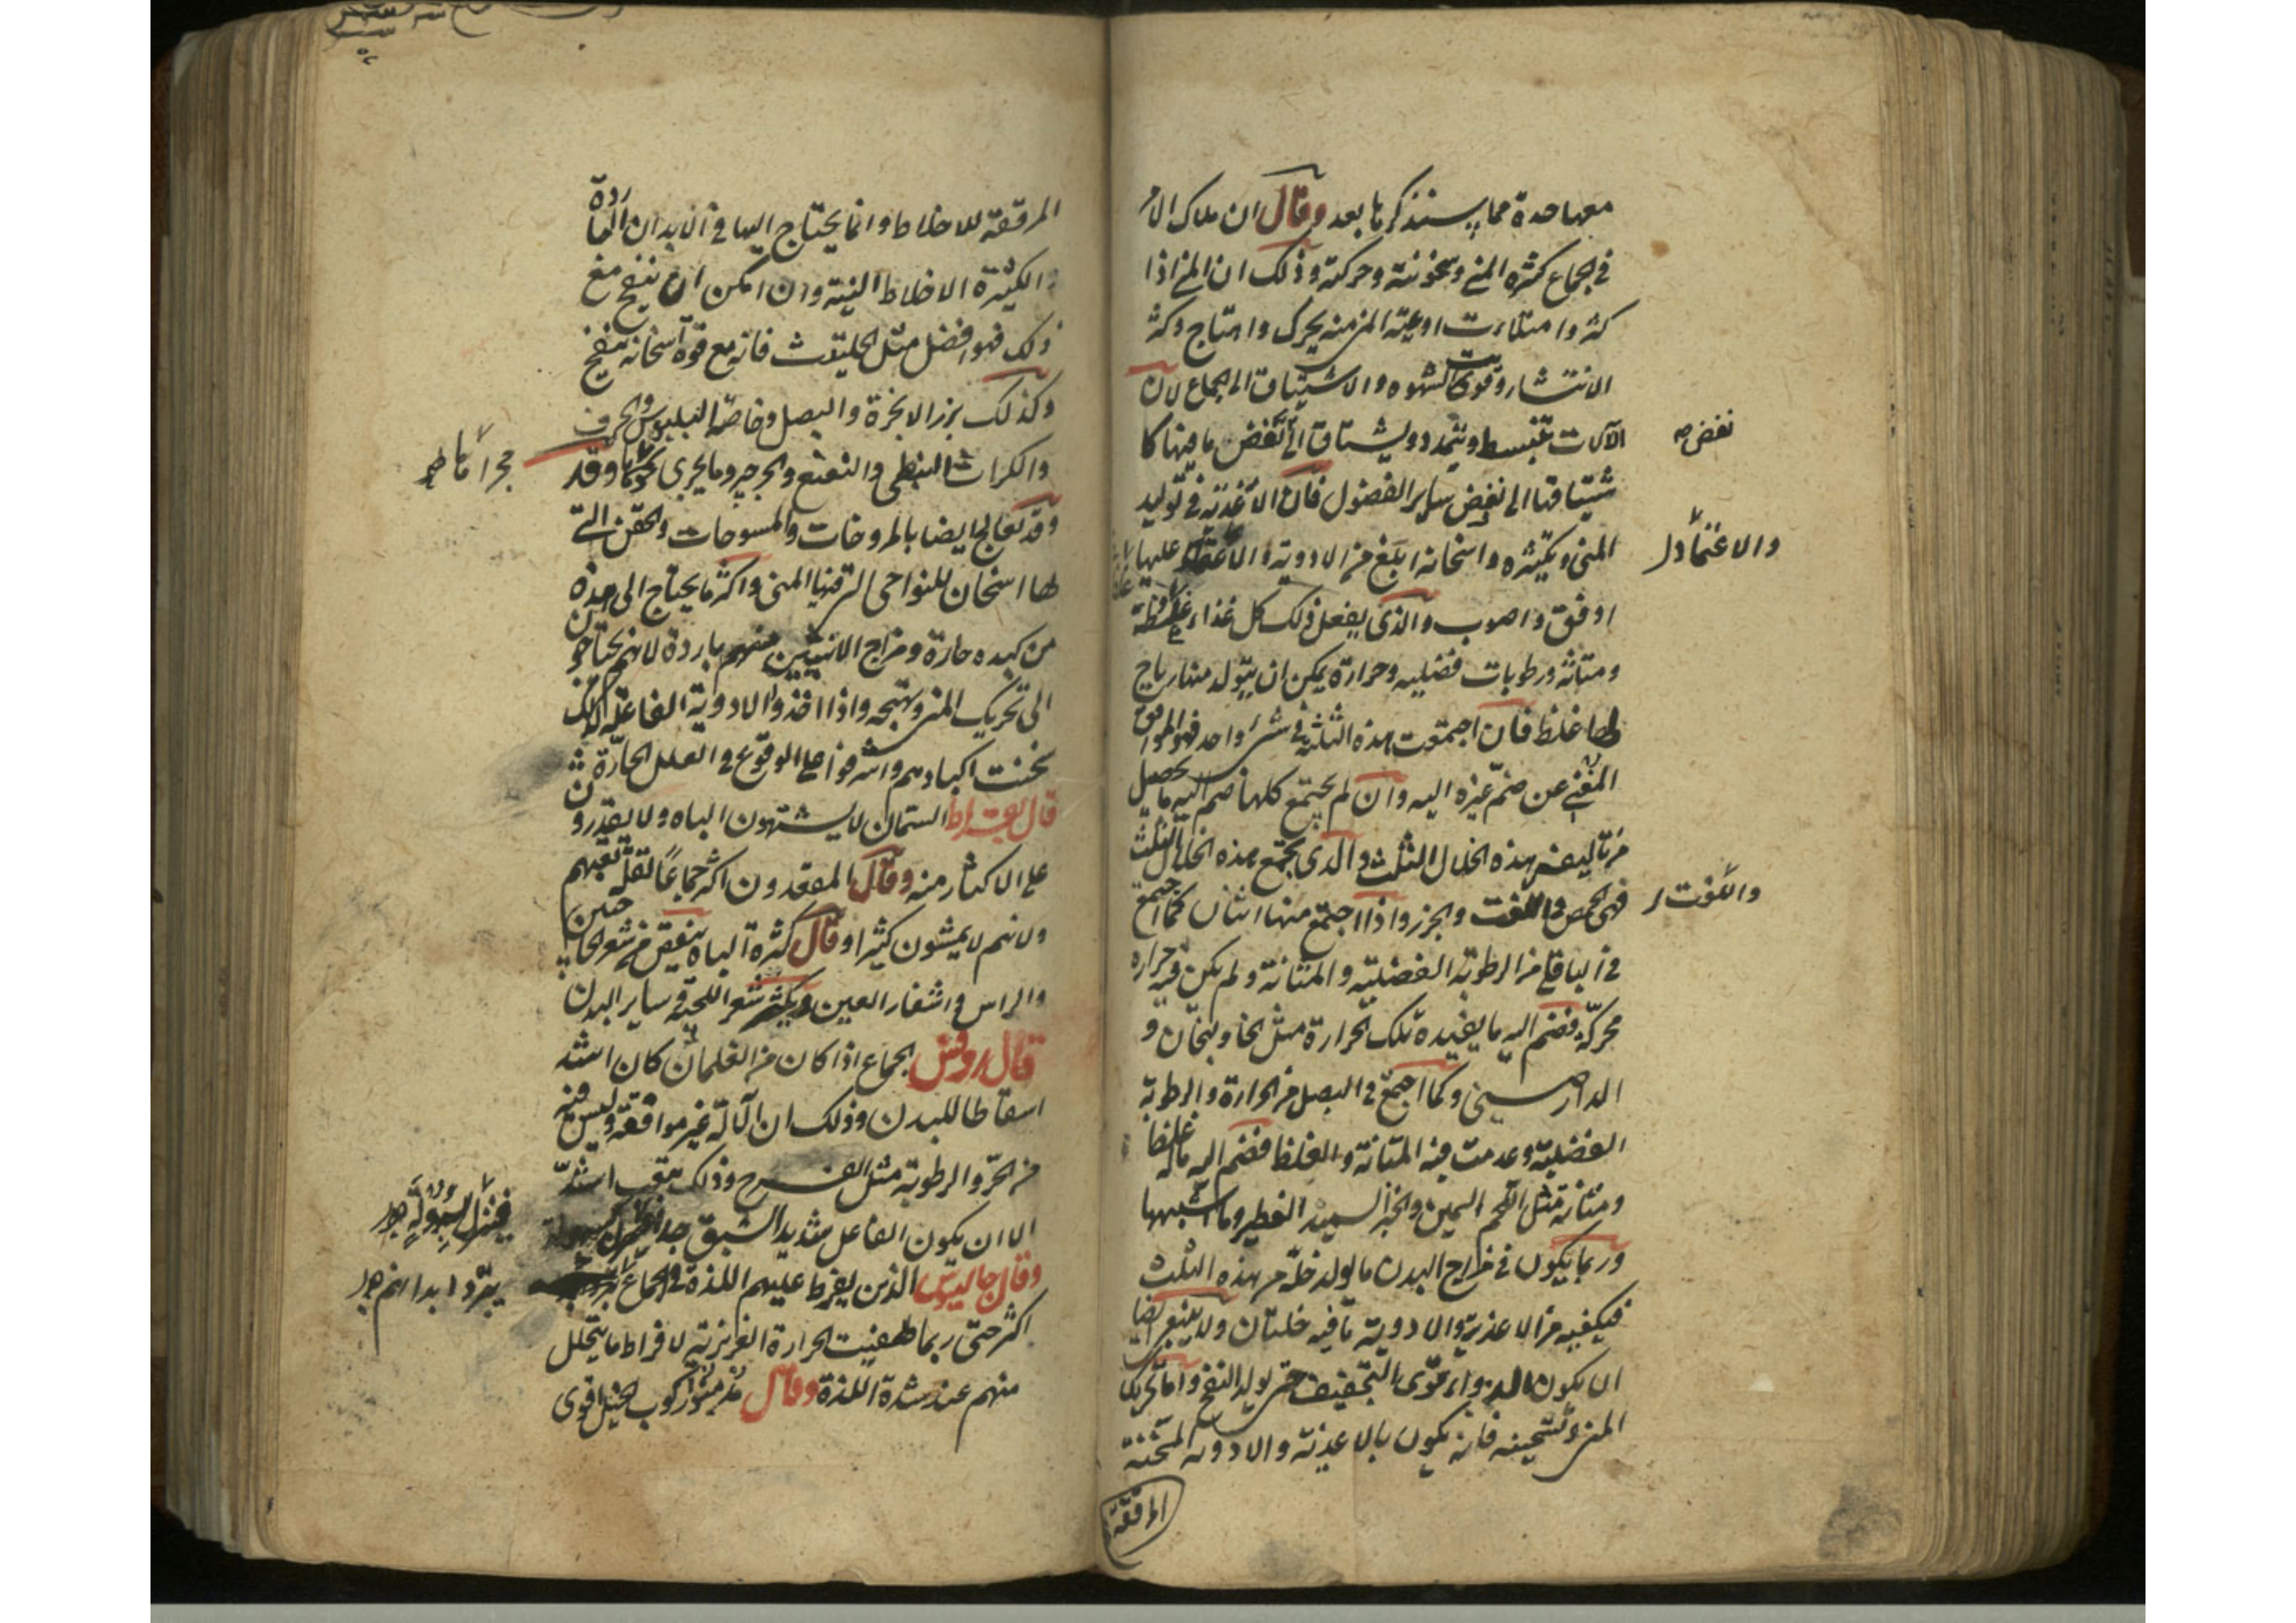 معها حدة مما سنذكرها بعد وقال ان ملاك الامر
في الجماع كثرة المني وسخونته وحركته وذلك ان المني اذا
كثر وامتلات اوعية المني منه يحرك واهتاج وكثر
الانتشار وقويت الشهوه والاشتياق الى الجماع لان
الآلات تنبسط وتتمدد ويشتاق الى نفض ما فيها كا
نفض صح
شتياقها الى نفض ساير الفضول فان الاغذية في توليد
المني وتكثيره واسخانه ابلغ من الادوية والاعتماد عليها
والاعتماد
اوفق واصوب والذي يفعل ذلك كل غذاء فيه
ومتانة ورطوبات فضليه وحرارة يمكن ان يتولد منها رياح
لها غلظ فان اجتمعت هذه الثلثة في شئ واحد فهو الموافق
المغني عن ضم غيره اليه وان لم يجتمع كلها ضم اليه ما يحصل
من تاليفه هذه الخلال الثلث والذي يجتمع هذه الخلال الثلث
فهي الحمص واللفت والجزر واذا اجتمع منها اثنان كما اجتمع
واللفت
في الباقلي من الرطوبة الفضلية والمتانة ولم يكن فيه حراره
محركة فضم اليه ما يفيده تلك الحرارة مثل الخاولنجان و
الدارصيني وكما اجتمع في البصل من الحرارة والرطوبة
الفضلية وعدمت فيه المتانة والغلظ فضم اليه ماله غلظا
ومتانة مثل اللحم السمين والخبز السميد الفطير وما اشبهها
وربما يكون في مزاج البدن ما يولد خلة من هذه الثلث
فيكفيه من الاغذية والادوية ما فيه خلتان ولا ينبغي ايضا
ان يكون الدواء قوي التجفيف حتى يولد النفخ واما تحريك
المني وتسخينه فانه يكون بالاغذية والادوية المسخنة
المرققة
المرققة للاخلاط وانما يحتاج اليها في الابدان الباردة
الكثيرة الاخلاط النية وان امكن ان ينفخ مع
ذلك فهو افضل مثل الحلتيت فانه مع قوة اسخانه ينفخ
وكذلك بزر الانجرة والبصل وخاصة البلبوس والحرف
والكراث النبطي والنعنع والجرجير وما يجري مجراها وقد
مجراها
وقد يعالج ايضا بالمروخات والمسوحات والحقن التي
لها اسخان للنواحي التي فيها المني واكثر ما يحتاج الى هذه
من كبده حارة ومزاج الانثيين منهم باردة لانهم يحتاجون
الى تحريك المني وتهيجه واذا اخذوا الادوية الفاعلة لذلك
سخنت اكبادهم واشرفوا على الوقوع في العلل الحارة
قال بقراط السمان لا يشتهون الباه ولا يقدرون
على الاكثار منه وقال المقعدون اكثر جماعا لقلة تعبهم
ولانهم لا يمشون كثيرا وقال كثرة الباه ينقص من شعر الحاجبين
والراس واشفار العين ويكثر شعر اللحية وساير البدن
قال روفس الجماع اذا كان من الغلمان كان اشد
اسقاطا للبدن وذلك ان الآلة غير موافقة وليس فيه
من الحر والرطوبة مثل الفرج وذلك يتعب اشد
الا ان يكون الفاعل شديد الشبق جدا
فينزل بسهولة
وقال جالينوس الذين يفرط عليهم اللذة في الجماع
يبرد ابدانهم
اكثر حتى ربما طفيت الحرارة الغريزية لافراط ما يتحلل
منهم عند شدة اللذة وقال ركوب الخيل اقوى